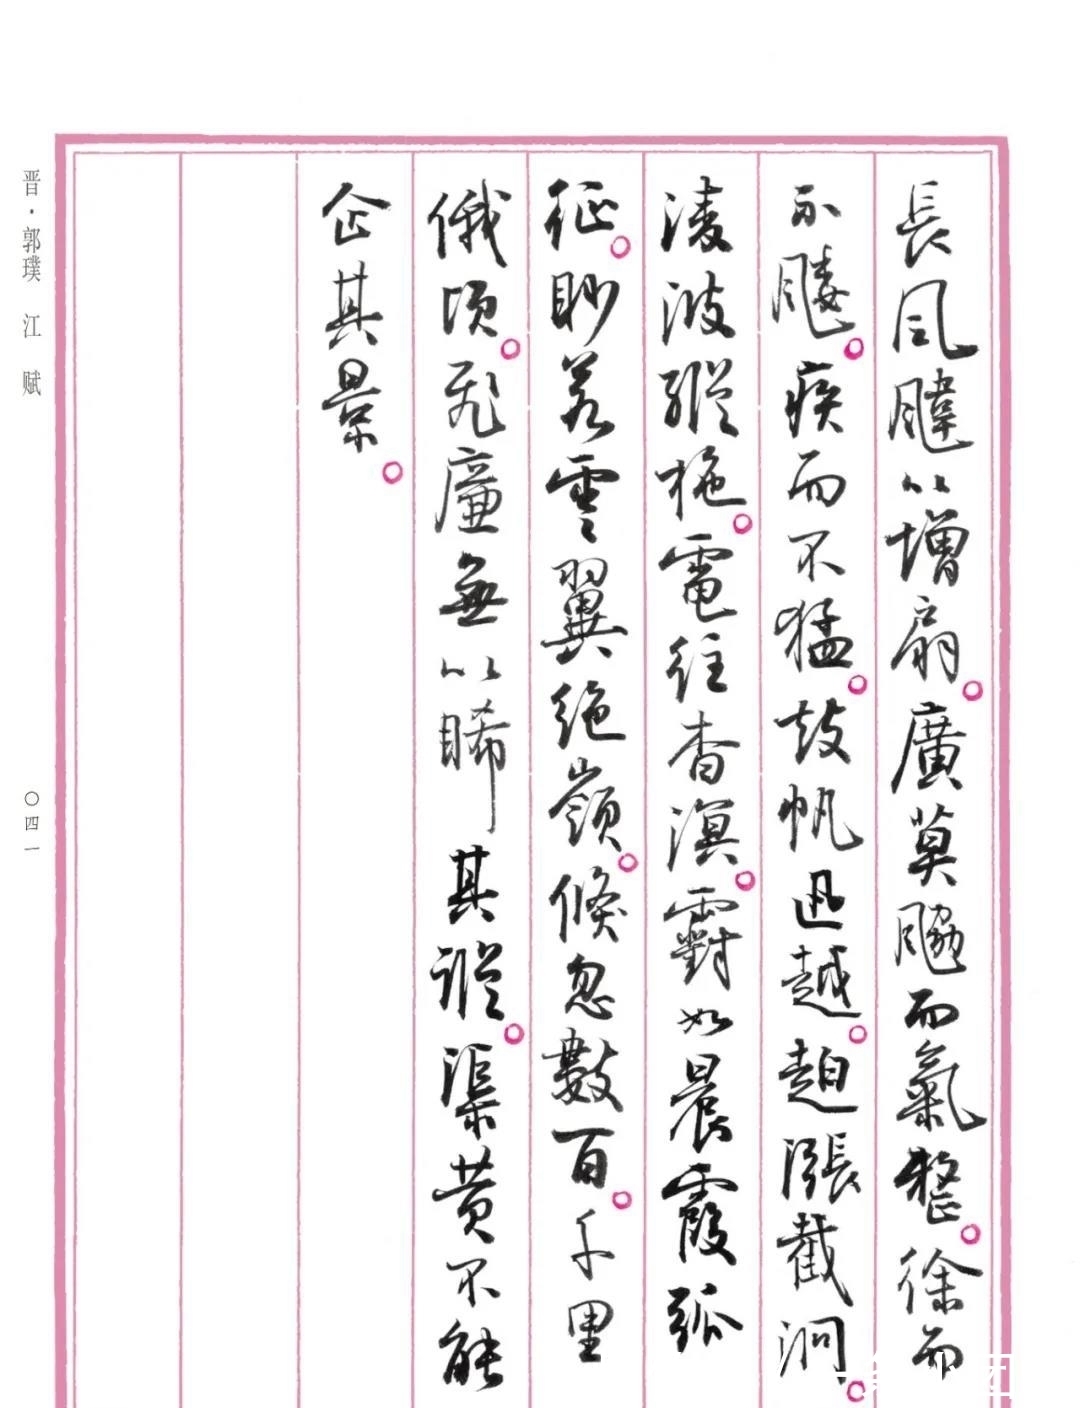 長風颹以增扇。廣莫䬅而氣整。徐而
不䬐。疾而不猛。鼓帆迅越。漲截泂。
淩波縱柂。電往杳溟。䨴如晨霞孤
征。眇若雲翼絕嶺。倏忽數百。千里
俄頃。飛廉無以睎其蹤。渠黃不能
企其景。
晋·郭璞 江 赋
〇四一